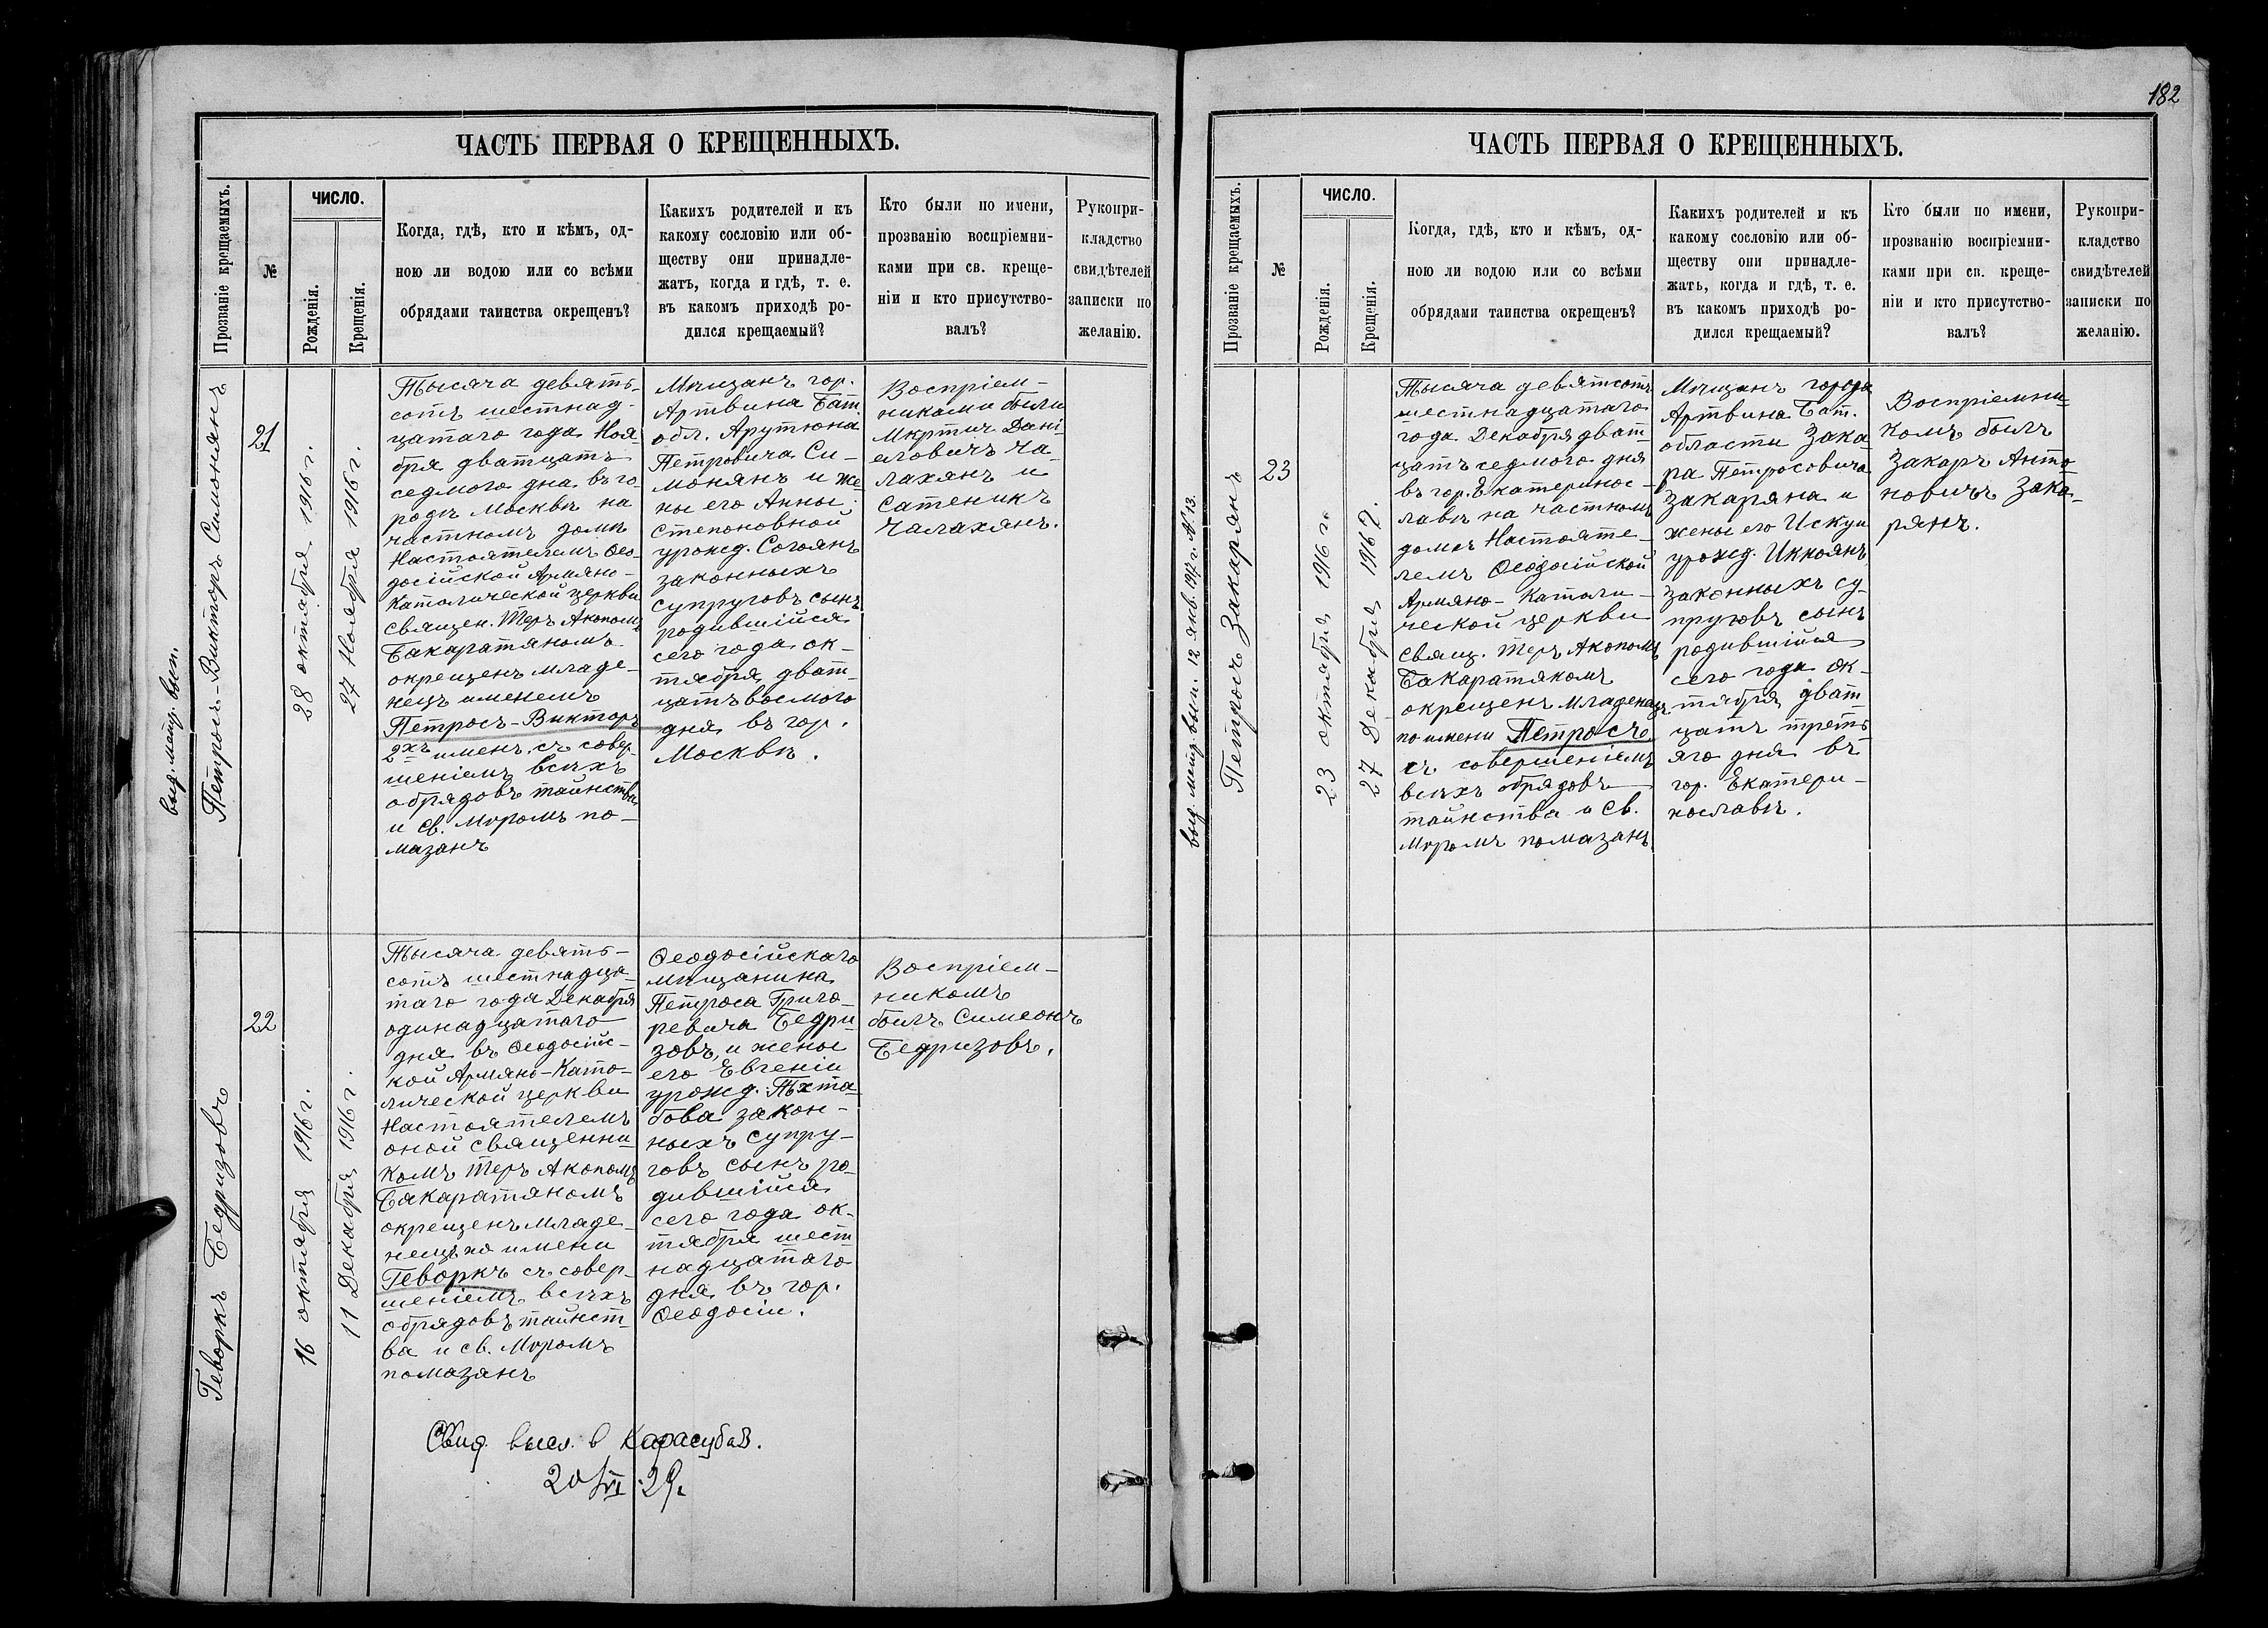 182
ЧАСТЬ ПЕРВАЯ О КРЕЩЕННЫХЪ.
Прозваніе крещаемыхъ.
№
ЧИСЛО.
Рожденія.
Крещенія.
Когда, гдѣ, кто и кѣмъ, од-
ною ли водою или со всѣми
обрядами таинства окрещенъ?
Какихъ родителей и къ
какому сословію или об-
ществу они принадле-
жатъ, когда и гдѣ, т. е.
въ какомъ приходѣ ро-
дился крещаемый?
Кто были по имени,
прозванію воспріемни-
ками при св. креще-
ніи и кто присутство-
валъ?
Рукопри-
кладство
свидѣтелей
записки по
желанію.
выд. метр. вып.
Петрось-Викторъ Симонянъ
21
28 октября 1916 г.
27 Ноября 1916 г.
Тысяча девять-
сотъ шестнад-
цатаго года Ноя-
бря дватцать
седмого дна въ го-
родѣ Москвѣ на
частномъ домѣ
Настоятелемъ Ѳео-
досійской Армяно-
Католической церкви
Священ. Теръ Акопомъ
Бакаратяномъ
окрещенъ младе-
нецъ именемъ
Петросъ-Викторъ
2хъ именъ, съ совер-
шеніемъ всѣхъ
обрядовъ таинства
и Св. Мѵромъ по-
мазанъ
Мѣщанъ гор.
Артвина Бат.
обл. Арутюна
Петровича Си-
монянъ и же-
ны его Анны
Степоновной
урожд. Согоянъ
законныхъ
супруговъ сынъ
родившійся
сего года ок-
тября дват-
цать восмого
дня въ гор.
Москвѣ.
Воспріем-
никами были
Мкртич Дані-
еловичъ Ча-
лахянъ и
Сатеникъ
Чалахянъ.
Геворкъ Бедризовъ
22
16 октября 1916 г.
11 Декабря 1916 г.
Тысяча девять-
сотъ шестнадца-
таго года Декабря
одинадцатаго
дня въ Ѳеодосійс-
кой Армяно-Като-
лической церкви
Настоятелемъ
оной священни-
комъ Теръ Акопомъ
Бакаратяномъ
окрещенъ младе-
нецъ по имени
Геворкъ съ совер-
шеніемъ всѣхъ
обрядовъ таинст-
ва и св. Мѵромъ
помазанъ
Ѳеодосійскаго
мѣщанина
Петроса Григо-
ревича Бедри-
зовъ, и жены
его Евгеніи
урожд. Тахта-
бова закон-
ныхъ супру-
говъ сынъ ро-
дившійся
сего года ок-
тября шест-
надцатаго
дня въ гор.
Ѳеодосіи.
Воспріем-
никомъ
былъ Симеонъ
Бедризовъ.
Свид. высл. в Карасубаз.
20/VI 29.
ЧАСТЬ ПЕРВАЯ О КРЕЩЕННЫХЪ.
Прозваніе крещаемыхъ.
№
ЧИСЛО.
Рожденія.
Крещенія.
Когда, гдѣ, кто и кѣмъ, од-
ною ли водою или со всѣми
обрядами таинства окрещенъ?
Какихъ родителей и къ
какому сословію или об-
ществу они принадле-
жатъ, когда и гдѣ, т. е.
въ какомъ приходѣ ро-
дился крещаемый?
Кто были по имени,
прозванію воспріемни-
ками при св. креще-
ніи и кто присутство-
валъ?
Рукопри-
кладство
свидѣтелей
записки по
желанію.
выд. метр. вып. 12 янв. 1917 г. № 13.
Петросъ Закарянъ
23
23 октября 1916 г.
27 Декабря 1916 г.
Тысяча девятсотъ
шестнадцатаго
года Декабря дват-
цать седмого дня
въ гор. Екатеринос-
лавѣ на частномъ
домѣ Настояте-
лемъ Ѳеодосійской
Армяно-Католи-
ческой церкви
Свящ. Теръ Акопомъ
Бакаратяномъ
окрещенъ младенецъ
по имени Петросъ
съ совершеніемъ
всѣхъ обрядовъ
таинства и Св.
Мѵромъ помазанъ
Мѣщанъ города
Артвина Бат.
области Зака-
ра Петросовича
Закаряна и
жены его Искуи
урожд. Икноянъ
законныхъ су-
пруговъ сынъ
родившійся
сего года ок-
тября дват-
цать треть-
яго дня въ
гор. Екатери-
нославѣ.
Воспріемни-
комъ былъ
Закаръ Анто-
новичъ Зака-
рянъ.